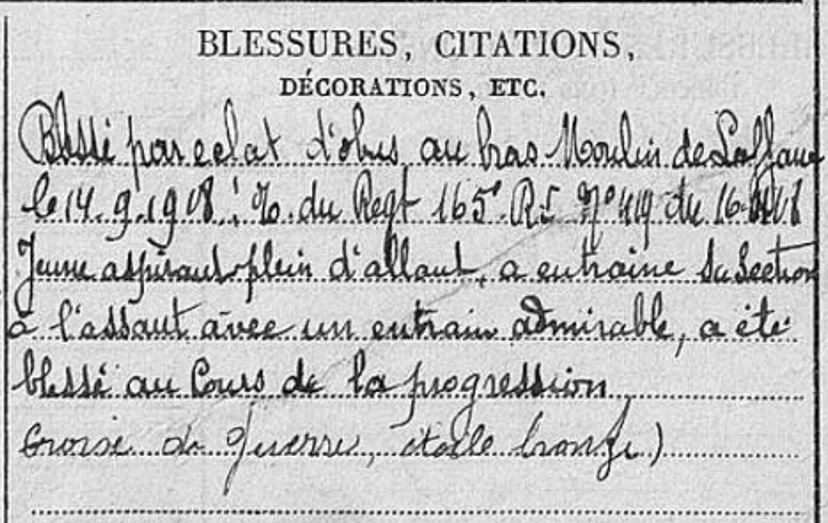 BLESSURES, CITATIONS,
DÉCORATIONS, ETC.
Blessé par eclat d'obus au bras Moulin de Laffaux
le 14.9.1918. O. du Regt 165e R.I. N° 419 du 16
Jeune aspirant plein d'allant, a entraine sa section
à l'assaut avec un entrain admirable, a été
blessé au Cours de la progression
Croix de Guerre, étoile bronze)